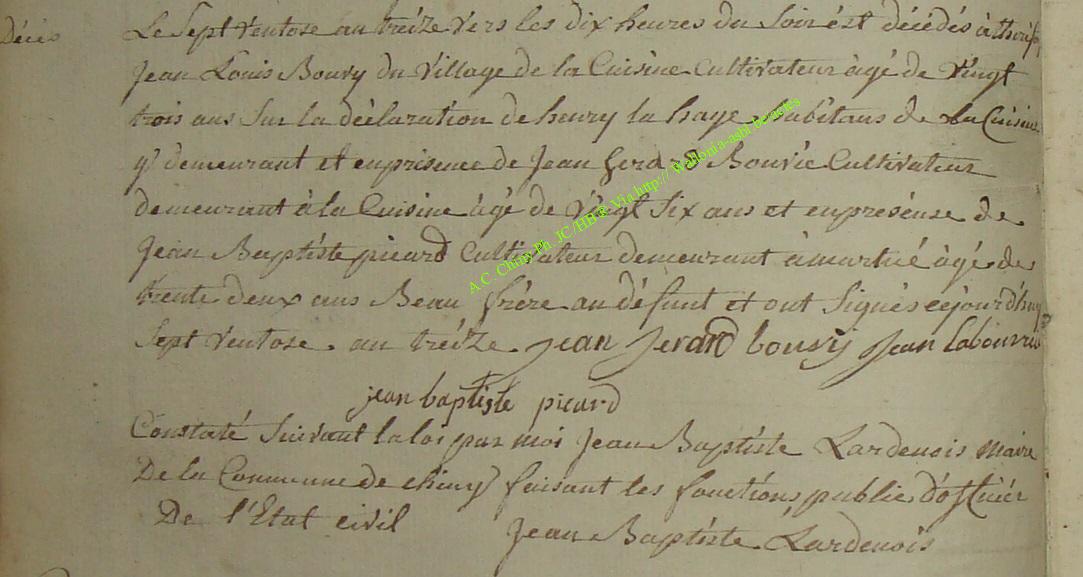 Décès
Le Sept Ventose an treize vers les dix heures du Soir ést décédés
Jean Louis Bouvy du Village de la Cuisine Cultivateur àgé de Vingt
trois ans Sur la déclaration de henry la haye habitans de La Cuisine
y demeurant et enprésence de Jean Bouvie Cultivateur
demeurant à la Cuisine àgé de Vingt Six ans et enpresense de
Jean Baptiste picard Cultivateur demeurant àmartué àgé de
trente deux ans Beau frère au défunt et ont Signés cejourd'huy
Sept Ventose an treize jean jerard bouvÿ jean
jean baptiste picard
Constaté Suivant la loi par moi Jean Baptiste Lardenois Maire
De la Commune de chiny faisant les fonctions public d'officier
De l'Etat civil Jean Baptiste Lardenois
A.C. Chiny Ph. JC/HB/R Via http:// Wallonia-asbl.be/actes